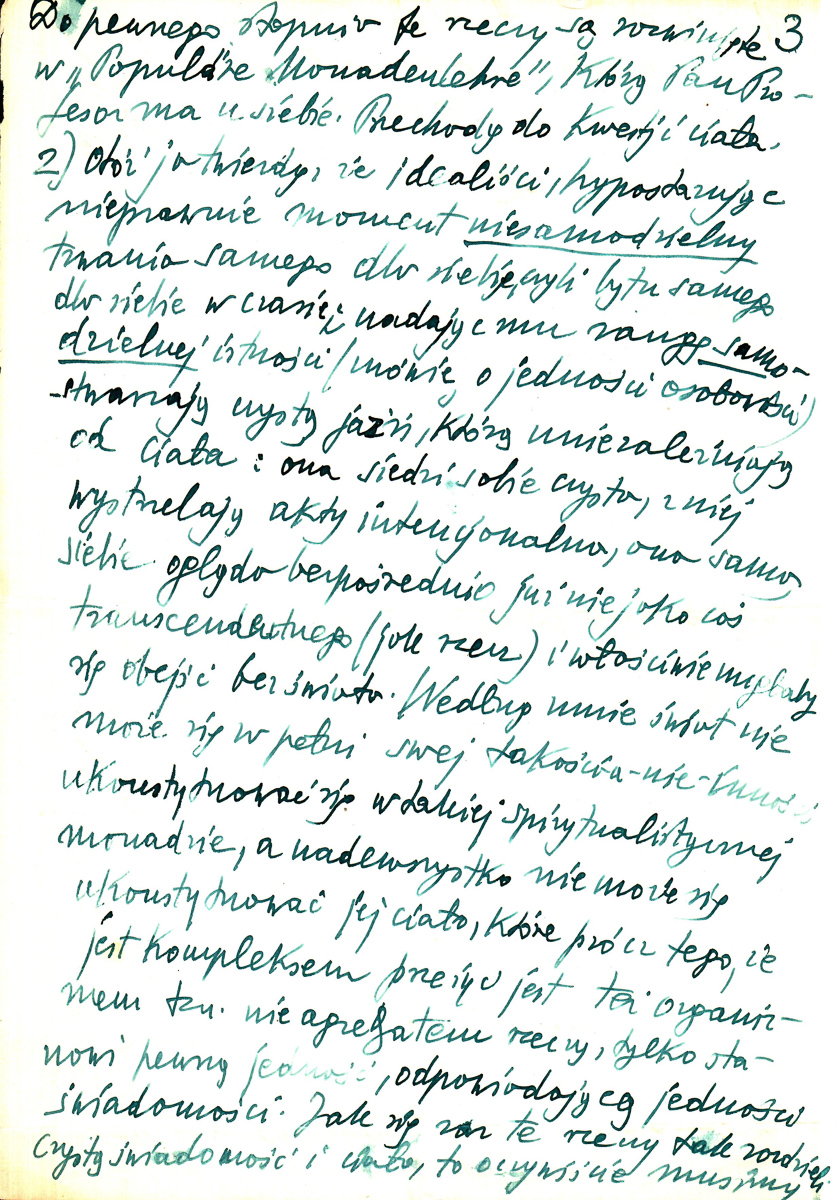 Do pewnego stopnia te rzeczy są rozwinięte 3
w „Populäre Monadenlehre", którą Pan Pro-
fesor ma u siebie. Przechodzę do kwestji ciała.
2) Otóż ja twierdzę, że idealiści, hypostazując
nieprawnie moment niesamodzielny
trwania samego dla siebie, czyli bytu samego
dla siebie w czasie, i nadając mu rangę samo-
dzielnej istności (mówię o jedności osobowości)
stwarzają czystą jaźń, którą uniezależniają
od ciała: ona siedzi sobie czysta, z niej
wystrzelają akty intencjonalne, ona sama
siebie ogląda bezpośrednio już nie jako coś
transcendentnego (jak rzecz) i właściwie mogłaby
się obejść bez świata. Według mnie świat nie
może się w pełni swej takości-a-nie-inności
ukonstytuować się w takiej spirytualistycznej
monadzie, a nadewszystko nie może się
ukonstytuować jej ciało, które prócz tego, że
jest kompleksem przeżyć jest też organiz-
mem tzn. nie agregatem rzeczy, tylko sta-
nowi pewną jedność, odpowiadającą jedności
świadomości. Jak się raz te rzeczy tak rozdzieli
czystą świadomość i ciało, to oczywiście musimy